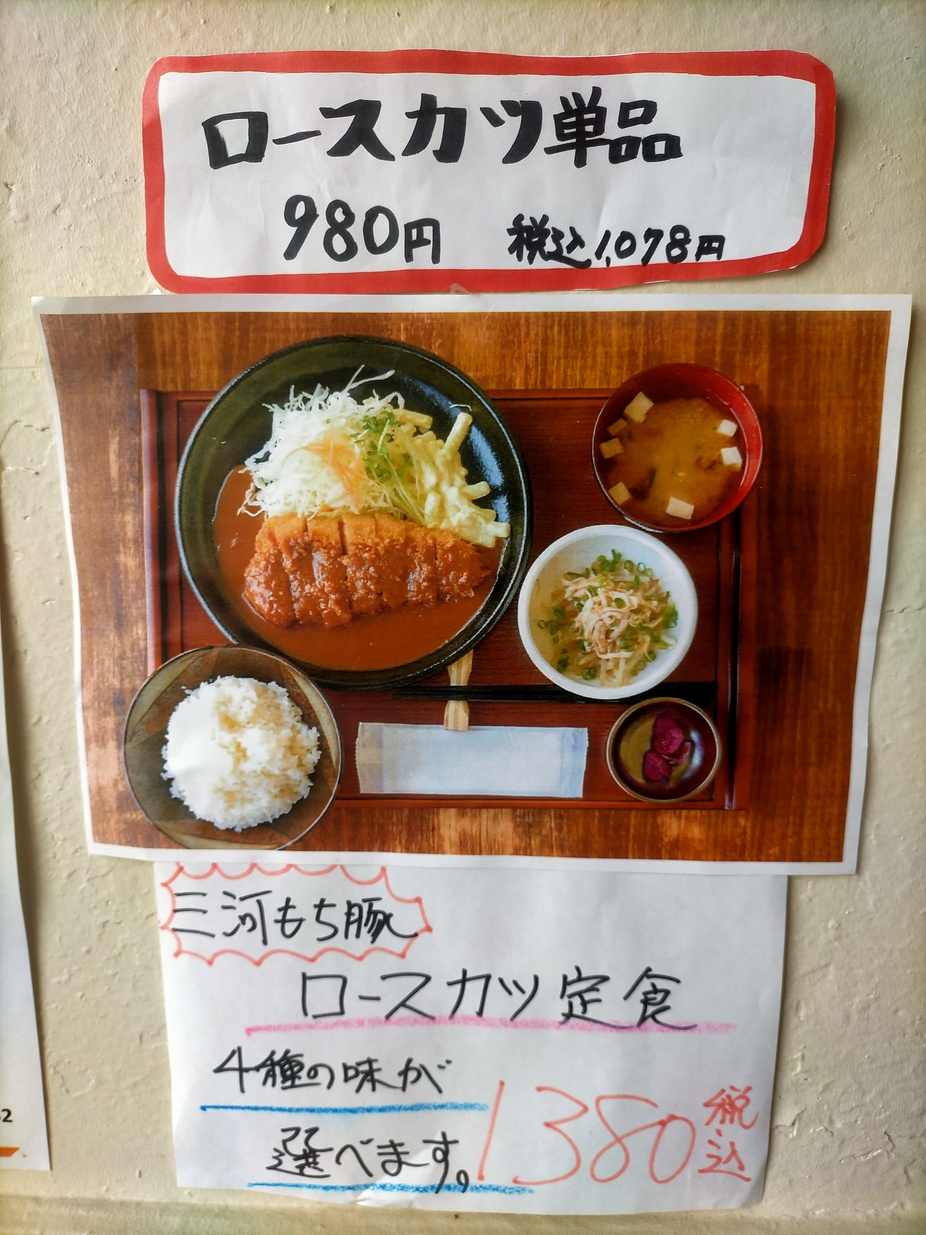 ロースカツ単品
980円 税込1,078円
三河もち豚
ロースカツ定食
4種の味が
選べます。
1380 税込